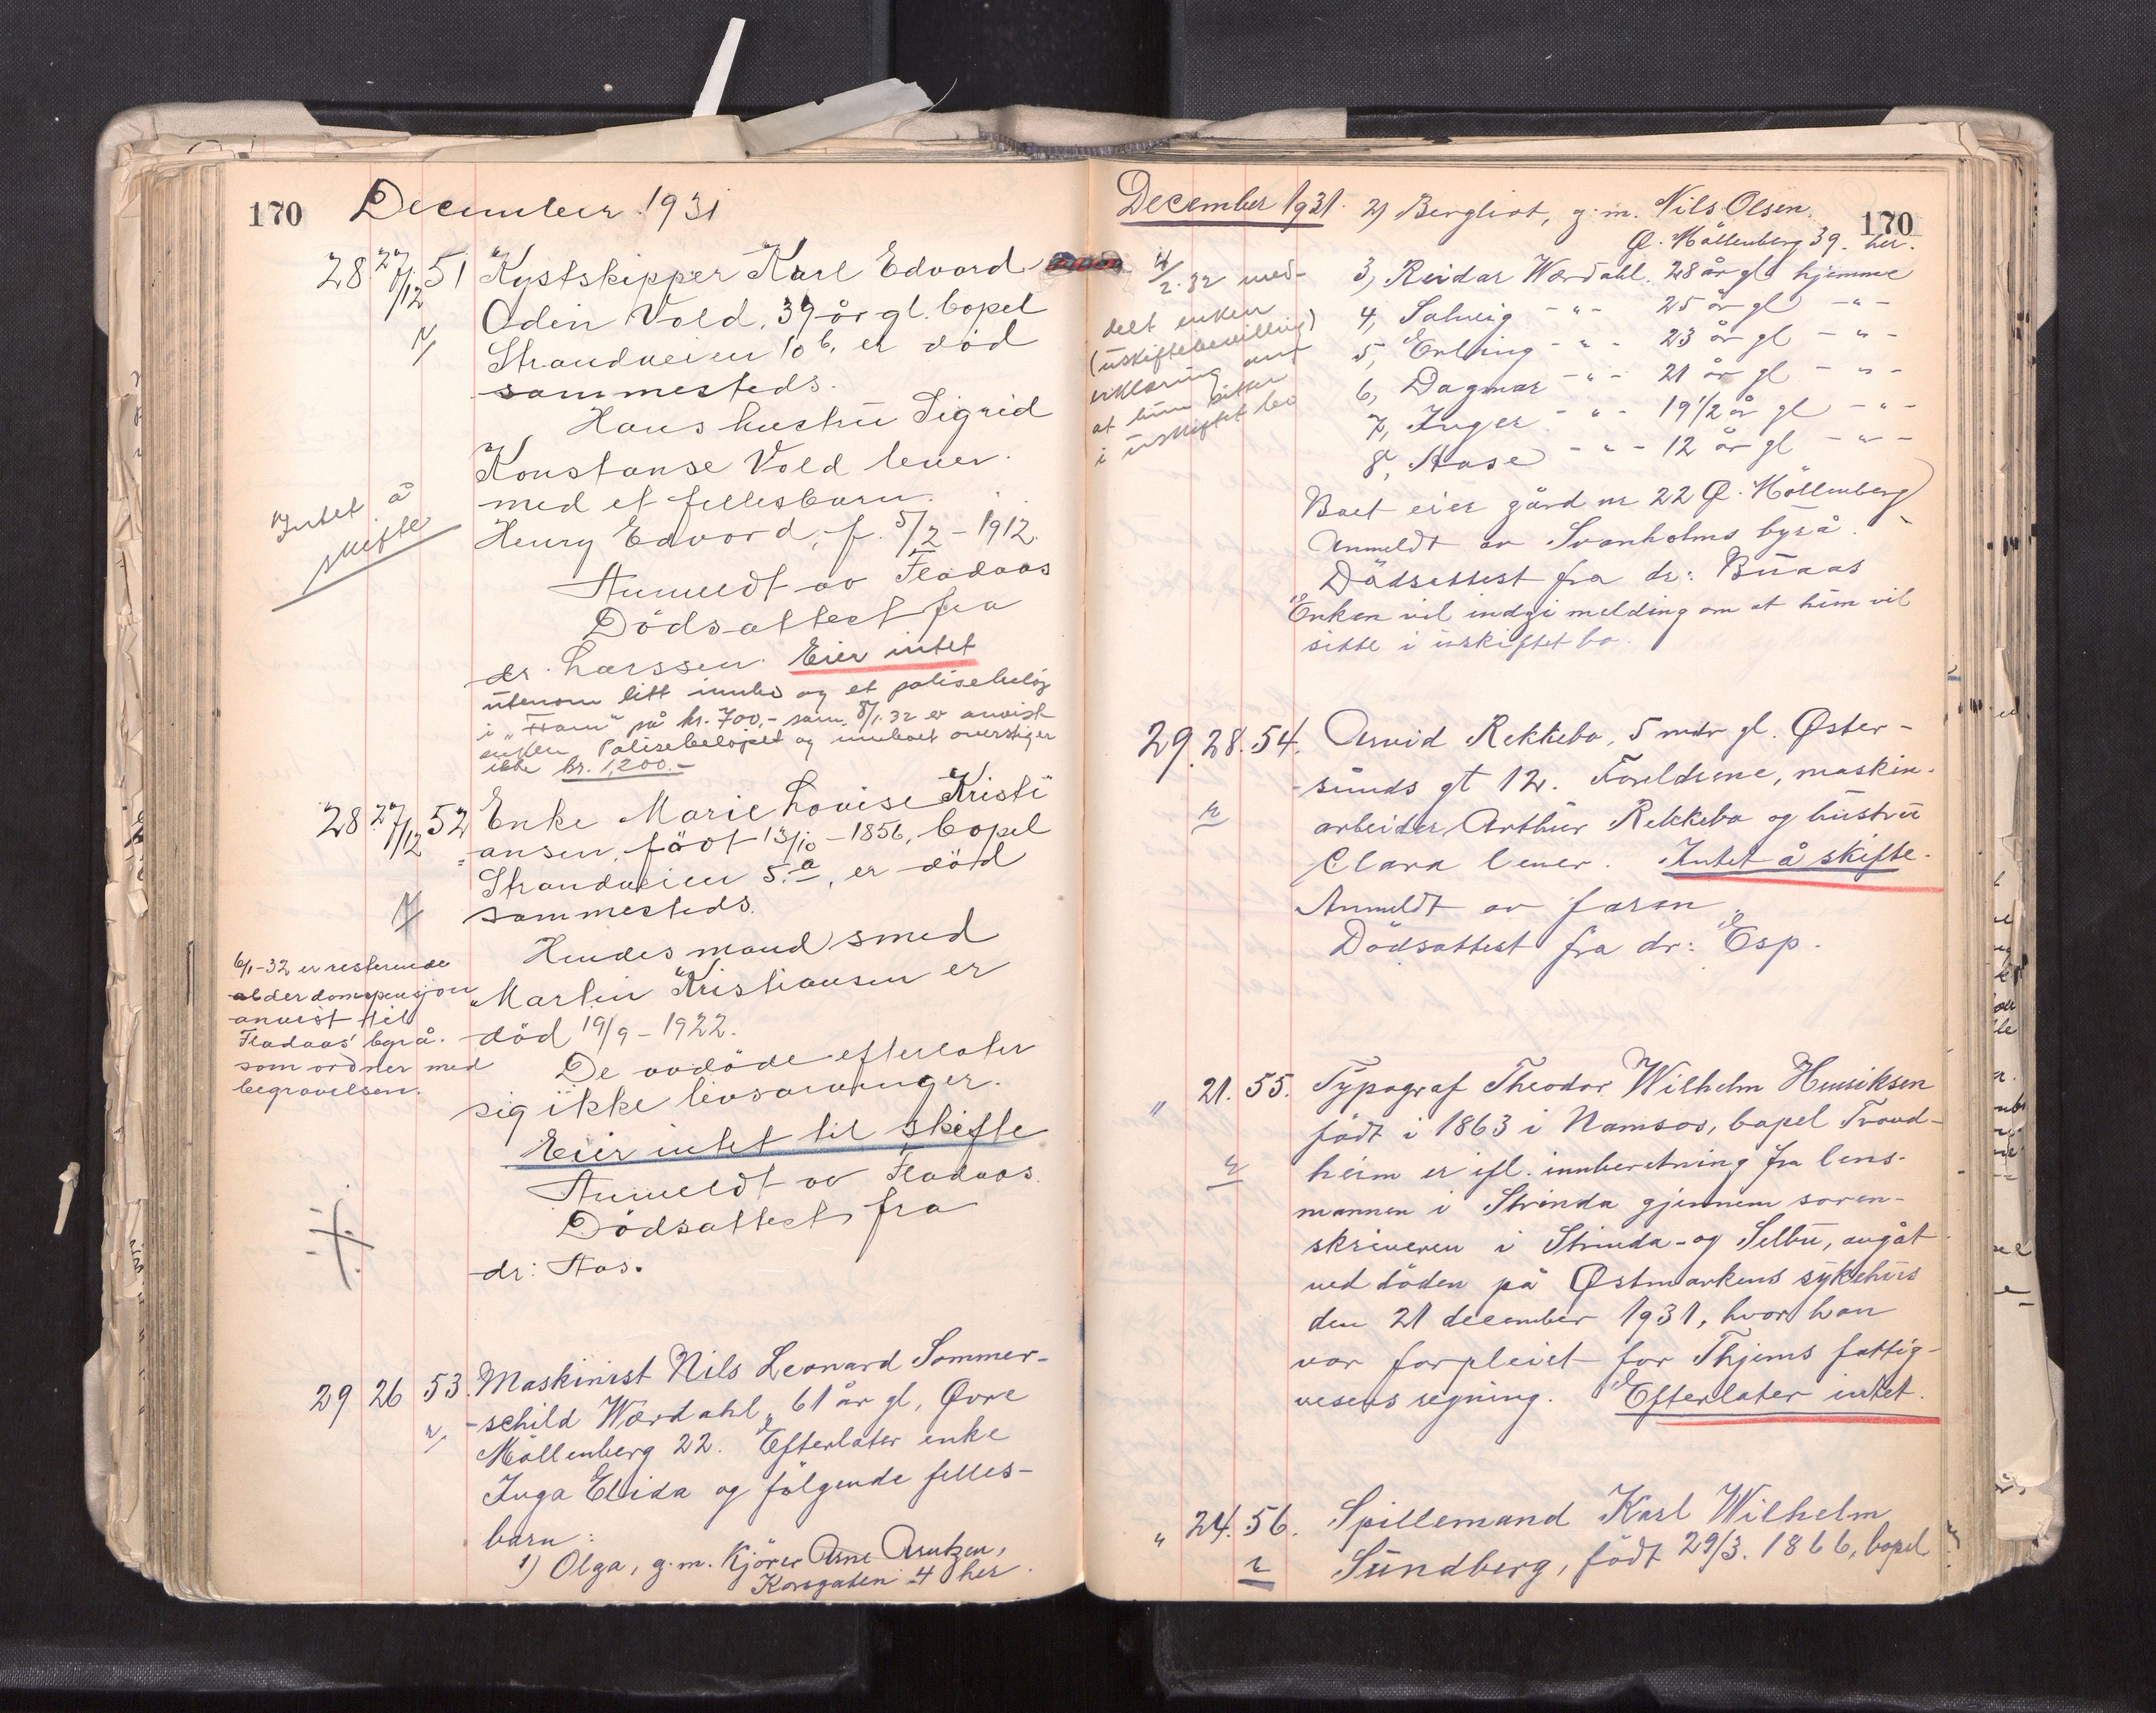 170 December 1931
28. 27/12 51 Kystskipper Karl Edvard
Odin Vold, 39 år gl. bopel
Strandveien 10 b, er död
sammesteds.
Hans hustru Sigrid
Konstanse Vold lever.
med et fellesbarn.
Henry Edvard, f. 5/2 - 1912.
Intet å
skifte
Anmeldt av Fladaas
Dödsattest fra
dr. Larssen. Eier intet
utenom litt innbo og et polisebelöp
i "Fram" på kr. 700,- som 8/1.32 er anvist
enken. Polisebelöpet og innboet overstiger
ikke kr. 1,200.-
28. 27/12 52 Enke Marie Lovise Kristi
=ansen, födt 13/10 - 1856, bopel
Strandveien 5.a, er död
sammesteds.
Hendes mand smed
Martin Kristiansen er
död 19/9 - 1922.
6/1-32 er resterende
alderdomspensjon
anvist til
Fladaas' byrå.
som ordner med
begravelsen.
De avdöde efterlater
sig ikke livsarvinger.
Eier intet til skifte
Anmeldt av Fladaas.
Dödsattest fra
dr: Aas.
29 26 53. Maskinist Nils Leonard Sommer-
-schild Wærdahl, 61 år gl, Övre
Möllenberg 22. Efterlater enke
Inga Elida og fölgende felles-
barn:
1) Olga, g.m. Kjörer Arne Arntzen,
Korsgaten 4 her.
December 1931. 2) Bergliot, g.m. Nils Olsen,
170
Ö. Möllenberg 39. her.
3, Reidar Wærdahl. 28 år gl. hjemme
4, Solveig -"- 25 år gl -"-
5, Erling -"- 23 år gl -"-
6, Dagmar -"- 21 år gl -"-
7, Inger -"- 19 1/2 år gl -"-
8, Aase -"- 12 år gl -"-
4/2.32 med-
delt enken
(uskiftebevilling)
erklæring om
at hun sitter
i uskiftet bo
Boet eier gård nr 22 Ö. Möllenberg
Anmeldt av Svanholms byrå.
Dödsattest fra dr: Buaas
Enken vil indgi melding om at hun vil
sitte i uskiftet bo.
29. 28. 54. Arvid Rekkebo, 5 mdr gl. Øster-
-sunds gt 12. Foreldrene, maskin-
arbeider Arthur Rekkebo og hustru
Clara lever. Intet å skifte.
Anmeldt av faren
Dödsattest fra dr: Esp.
" 21. 55. Typograf Theodor Wilhelm Henriksen
födt i 1863 i Namsos, bopel Trond-
heim er ifl. innberetning fra lens-
mannen i Strinda gjennem soren-
skriveren i Strinda- og Selbu, avgåt
ved döden på Østmarkens sykehus
den 21 december 1931, hvor han
var forpleiet for Thjems fattig-
vesens regning. Efterlater intet.
" 24. 56. Spillemand Karl Wilhelm
Sundberg, födt 29/3. 1866, bopel